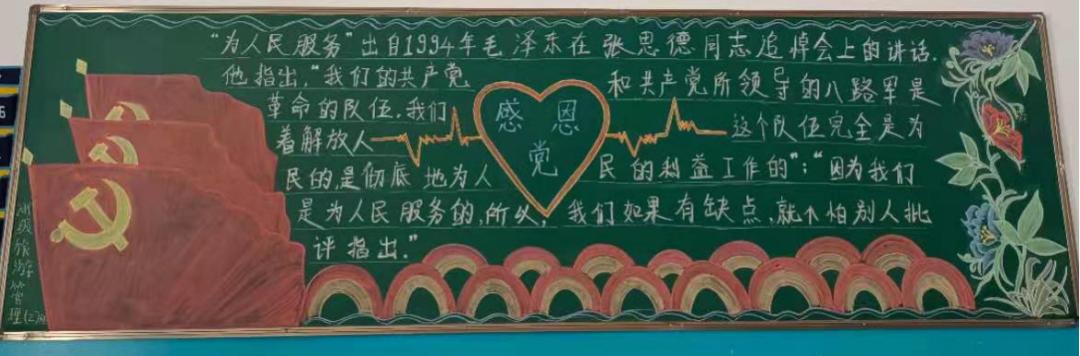 "为人民服务"出自1994年毛泽东在张思德同志追悼会上的讲话.
他指出,"我们的共产党和共产党所领导的八路军是
革命的队伍.我们这个队伍完全是为
着解放人
民的,是彻底地为人民的利益工作的";"因为我们
是为人民服务的,所以,我们如果有缺点,就不怕别人批
评指出."
感恩
党
级旅游管理(2)班